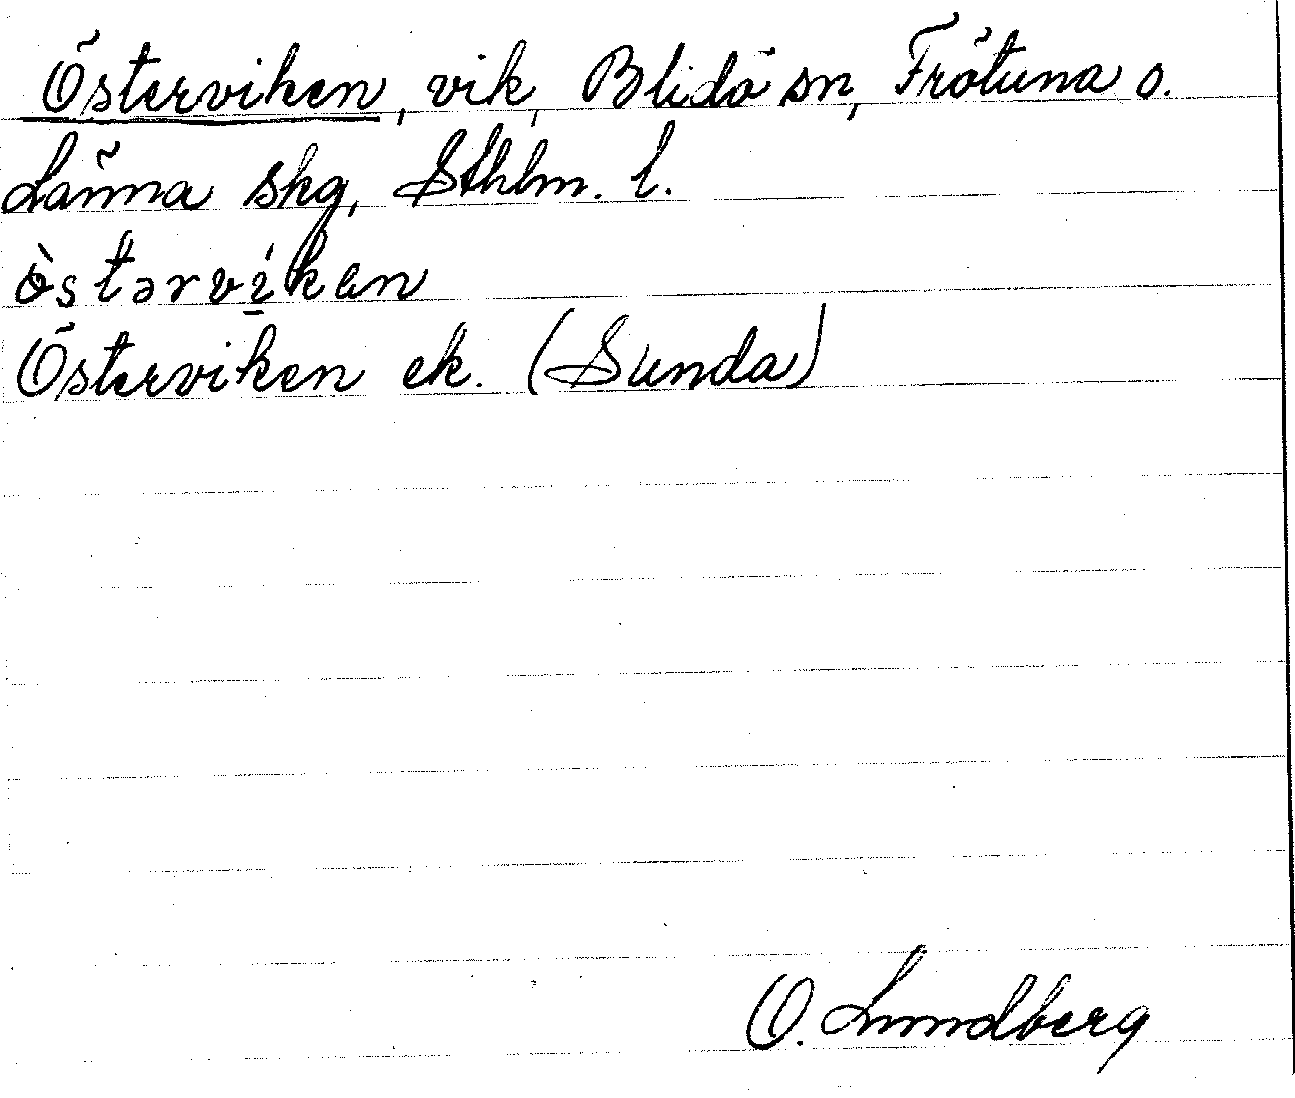 Österviken, vik, Blidö sn, Frötuna o.
Länna skg, Sthlm. l.
òstərví̱kan
Österviken ek. (Sunda)
O. Lundberg